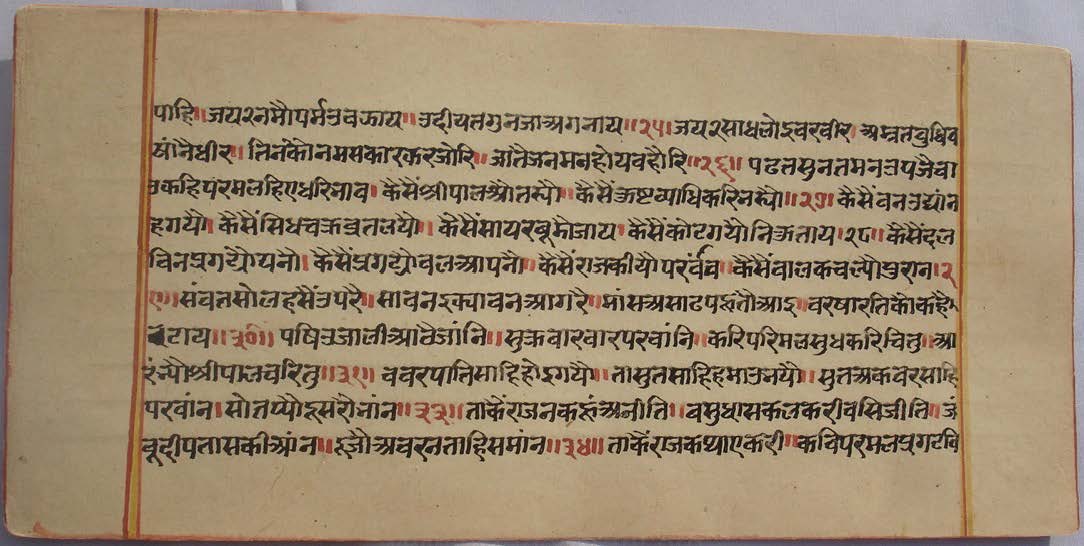 पाहि॥जय२नमौपर्मउवझाय॥उदीयतगुनजाअगनाय॥२५॥जय२साधलोइवरवीर।अम्रतवुधिव
यांनैधीर॥तिनंकौनमसकारकरजोरि॥जातैजनमनहोयवहौरि॥२६॥पढतसुनतमनउपजैचा
उकहिपरमलहिएधरिभाव॥कैसैंश्रीपालऔतस्यौ॥कैसैंकुष्टव्याधिकरिभस्यौ॥२७॥कैसैंवनउद्यांन
हगयौ॥कैसैंसिधचक्रव्रतलयौ॥कैसैंसायरबूमौजाय॥कैसैंकोटगयौनिकुताय॥२८॥कैसैंदल
विनप्रगट्योयनौ॥कैसैंप्रगट्योवलआपनौ॥कैसैंराजकीयौपरचंव॥कैसैंवालकचल्यौपुरान॥२
९॥संवतसोलहसैंउपरै॥सावनइक्यावनआगरै॥मांसअसाढपहुतौआइ॥वरषारितिकौकहैं
वटाय॥३०॥पषिउजालीआठैजांनि॥सुक्रवारवारपरवांनि॥करिपरिमलसुधकरिचितु॥आ
रंभ्यौश्रीपालचरितु॥३१॥ववरपातिसाहिहोइगयौ॥तासुतसाहिहमाउभयौ॥सुतअकवरसाहि
परवांन॥सोतप्यौदूसरौभांन॥३३॥ताकैंराजनकहुंअनीति॥वसुधासकलकरीवसिजीति॥जं
वूदीपतासकीआंन॥दूजौअवरनताहिसमांन॥३४॥ताकैंराजकथाएकरी॥कविपरमलप्रगटवि